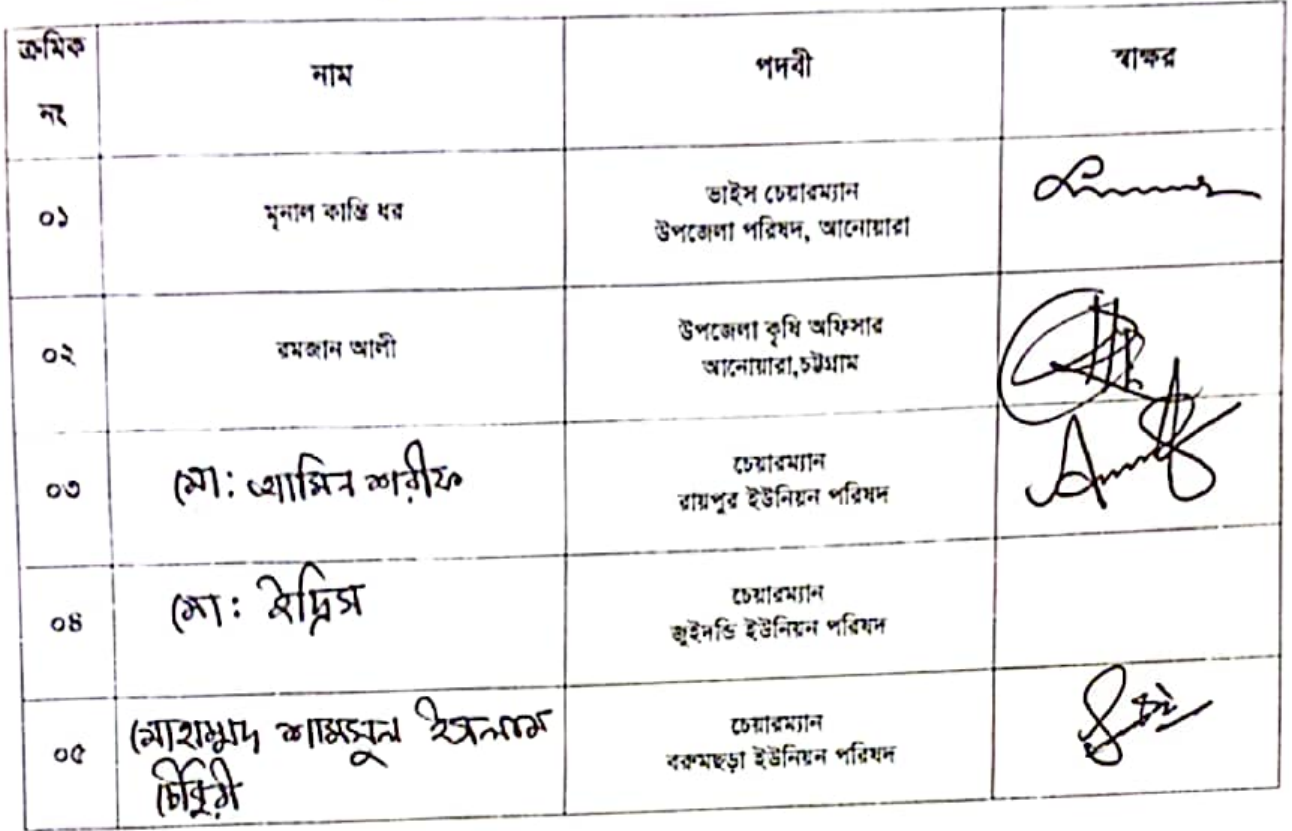 ক্রমিক
নং
নাম
পদবী
স্বাক্ষর
০১
মৃনাল কান্তি ধর
ভাইস চেয়ারম্যান
উপজেলা পরিষদ, আনোয়ারা
০২
রমজান আলী
উপজেলা কৃষি অফিসার
আনোয়ারা,চট্টগ্রাম
০৩
মো: আমিন শরীফ
চেয়ারম্যান
রায়পুর ইউনিয়ন পরিষদ
০৪
মো: ইদ্রিস
চেয়ারম্যান
জুইদন্ডি ইউনিয়ন পরিষদ
০৫
মোহাম্মদ শামসুল ইসলাম
চৌধুরী
চেয়ারম্যান
বরুমছড়া ইউনিয়ন পরিষদ